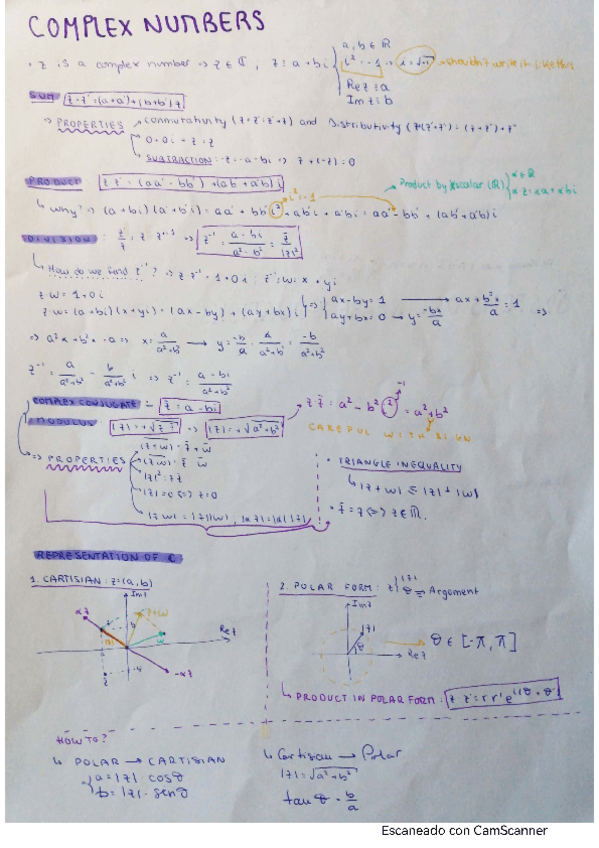 COMPLEX NUMBERS
· z is a complex number => z ∈ ℂ, z = a + bi { a, b ∈ ℝ
i² = -1 → i = √-1 → shouldn't write it like this
Re z = a
Im z = b
SUM z + z' = (a + a') + (b + b')i
=> PROPERTIES commutativity (z + z' = z' + z) and Distributivity
0 + 0i + z = z
SUBTRACTION: -z = -a - bi => z + (-z) = 0
PRODUCT z z' = (aa' - bb') + (ab' + a'b)i
Product by scalar (ℝ) { α ∈ ℝ
α z = αa + αbi
i² = -1
Why? => (a + bi)(a' + b'i) = aa' + bb' i² + ab'i + a'bi = aa' - bb' + (ab' + a'b)i
DIVISION: z/z' = z · z'⁻¹ => z⁻¹ = a - bi / a² - b² = z̄ / |z|²
How do we find z⁻¹? => z · z⁻¹ = 1 + 0i ; z⁻¹ = w = x + yi
z w = 1 + 0i
z w = (a + bi)(x + yi) = (ax - by) + (ay + bx)i => { ax - by = 1 → ax + b²x/a = 1 =>
ay + bx = 0 → y = -bx/a
=> a²x + b²x = a => x = a/a²+b² → y = -b/a · a/a²+b² = -b/a²+b²
z⁻¹ = a/a²+b² - b/a²+b² i => z⁻¹ = a - bi/a²+b²
COMPLEX CONJUGATE z̄ = a - bi
z z̄ = a² - b² i² = a² + b²
-1
MODULUS |z| = +√z z̄ => |z| = +√a²+b²
CAREFUL WITH SIGN
=> PROPERTIES
(z + w) = z̄ + w̄
(z · w) = z̄ · w̄
|z|² = z z̄
|z| = 0 <=> z = 0
|z w| = |z||w|, |αz| = |α||z|
· TRIANGLE INEQUALITY
|z + w| ≤ |z| + |w|
· z̄ = z <=> z ∈ ℝ.
REPRESENTATION OF ℂ
1. CARTISIAN: z = (a, b)
Im z
αz
z + w
z
w
Re z
-αz
2. POLAR FORM: z } |z|
θ => Argement
Im z
|z|
θ
Re z
θ ∈ [-π, π]
PRODUCT IN POLAR FORM: z z' = r r' e^i(θ + θ')
HOW TO?
POLAR → CARTISIAN
a = |z| · cos θ
b = |z| · sen θ
Cartisian → Polar
|z| = √a² + b²
tan θ = b/a
Escaneado con CamScanner